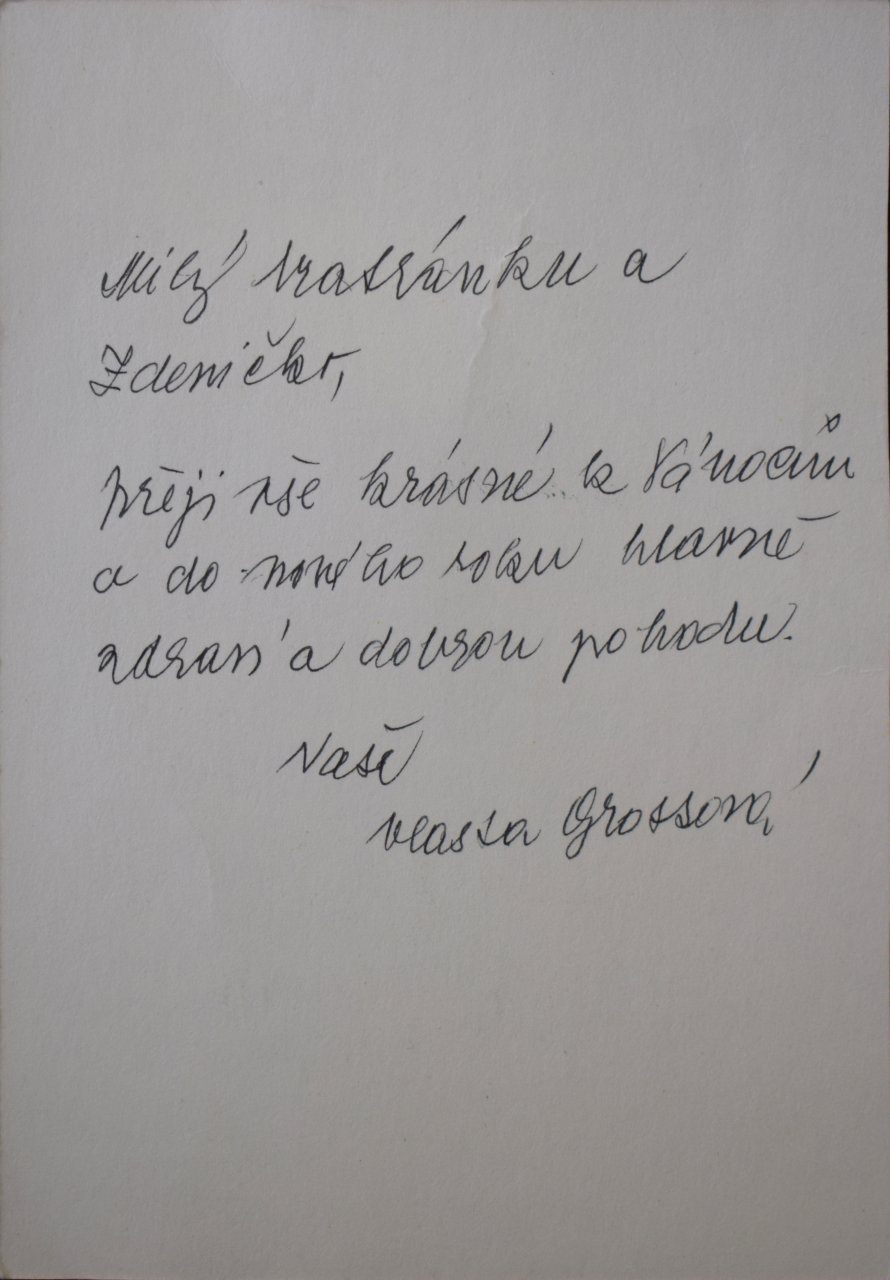 Milý bratránku a
Zdeničko,
přeji vše krásné k Vánocům
a do nového roku hlavně
zdraví a dobrou pohodu.
Vaše
Vlasta Grossová